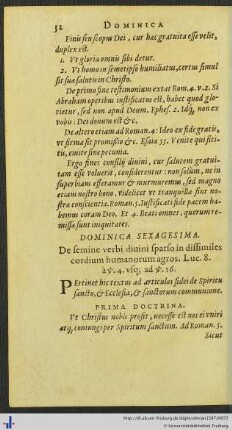 32 DOMINICA
Finis seu scopus Dei, cur hac gratuita esse velit,
duplex est.
1. Vt gloria omnis sibi detur.
2. Vt homo in semetipso humiliatus, certus simul
sit sua salutis in Christo.
De primo fine testimonium extat Rom. 4. v. 2. Si
Abraham operibus iustificatus est, habet quod glo-
rietur, sed non apud Deum. Ephes. 2. Idq, non ex
vobis: Dei donum est &c.
De altero etiam ad Roman. 4: Ideo ex fide gratis, vt
vt firma sit promissio &c. Esaia 55. Venite qui siti-
tis, emite sine pecunia.
Ergo fines consilij diuini, cur salutem gratui-
tam esse voluerit, considerentur: non solùm, ne in
superbiam efferamur & murmuremus, sed magno
etiam nostro bono, videlicet vt tranquilla sint no-
stra conscientia. Roman. 5. Iustificati fide pacem ha-
bemus coram Deo. Et 4. Beati omnes, quorum re-
missæ sunt iniquitates.
DOMINICA SEXAGESIMA.
De semine verbi diuini sparso in dissimiles
cordium humanorum agros. Luc. 8.
à ℣. 4. vsq; ad ℣. 16.
Pertinet hic textus ad articulos fidei de Spiritu
sancto, & Ecclesia, & sanctorum communione.
PRIMA DOCTRINA.
Vt Christus nobis prosit, necesse est nos ei vniri
atq, coniungi per Spiritum sanctum. Ad Roman. 5.
Sicut
© Universitätsbibliothek Freiburg